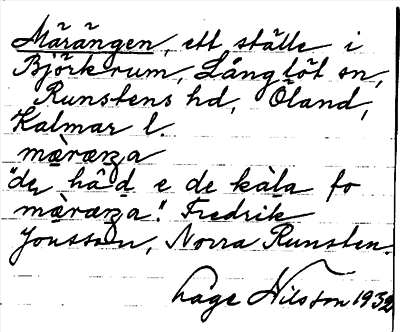 Märängen, ett ställe i
Björkrum, Långlöt sn,
Runstens hd, Öland,
Kalmar l.
mæ̀ræŋa
"de hâd e de kàla fo
mæ̀ræŋa". Fredrik
Jonsson, Norra Runsten.
Låge Nilsson 1932